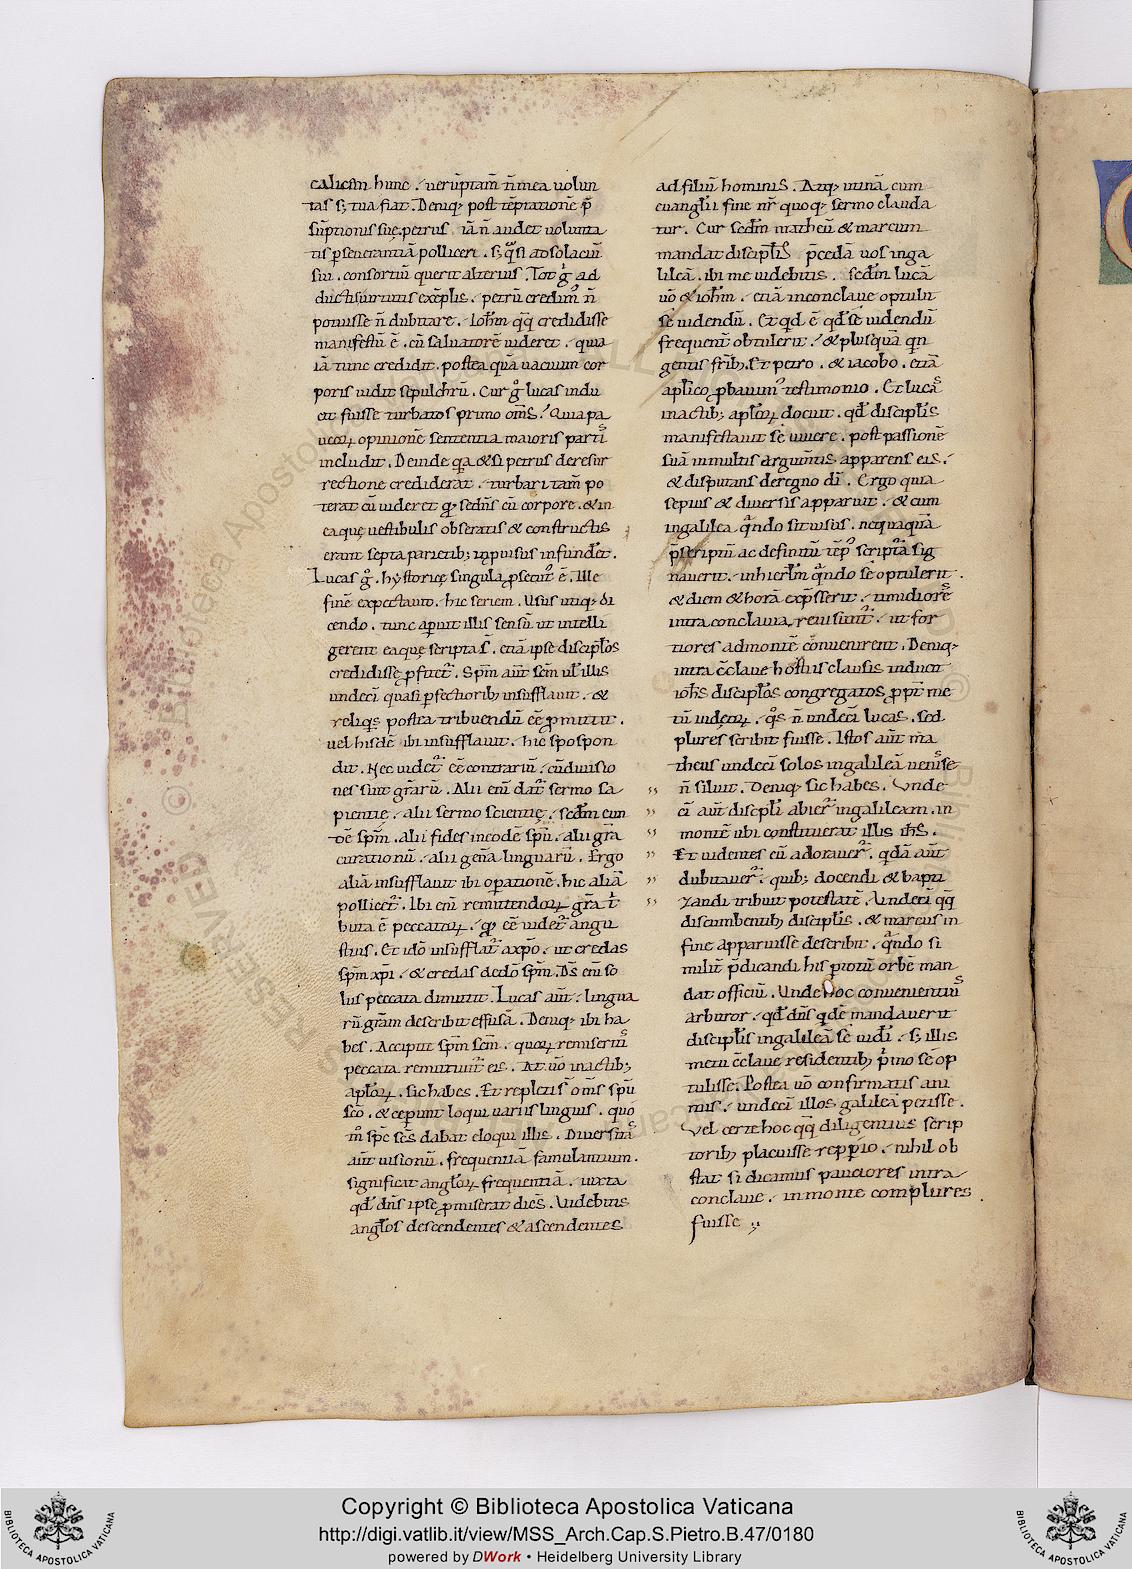 calicem hunc. uerūptam̄ n̄ mea uolun
tas s; tua fiat. Deniq; post tēptationē p̄
sūptionis suę petrus. iā n̄ audet uolunta
tis pseuerantiā polliceri. s; q̄si ad solaciū
sui. consortiū querit alterius. Tot g̊ ad
ducti suīmus exēplis. petrū credim᷒ n̄
potuisse n̄ dubitare. Ioh̄m q̄q̄ credidisse
manifestū ē. cū saluatorē uideret. quia
iā tunc credidit. postea quā uacuum cor
poris uidit sepulchrū. Cur g̊ lucas indu
cit fuisse turbatos primo om̄s. Quia pa
ucoꝝ opinionē sententia maioris partis
includit. Deinde qa & si petrus de resur
rectione crediderat. turbari tam̄ po
terat cū uideret
eaque uestibulis obseratis & constructis
erant septa parietib;
Lucas g̊. hystorię singula psecut᷒ ē. Ille
finē expectauit. hic seriem. Usus utiq; di
cendo. tunc apuit illis sensū ut intelli
gerent eaque scripta s̄. etiā ipse discipl̄os
credidisse
undeci quasi pfectiorib; insufflauit. &
reliq̄s postea tribuendū eē ꝓmittit.
uel hisdē ibi insufflauit. hic spopon
dit. Nec uidet᷒ eē contrariū. cū diuisio
nes sint gr̄arū. Alii eni dat᷒ sermo sa
pientię. alii sermo scientię. sedm eun
dē spm̄. alii fides in eodē spū. alii gr̄a
curationū. alii gen̄a linguarū. Ergo
aliā insufflauit ibi opationē. hic aliā
pollicet᷒. Ibi eni remittendoꝝ gr̄a t̄
buta ē peccatoꝝ. eē uidet᷒ angu
stius. Et idō insufflat᷒ a xp̄o. ut credas
spm̄ xp̄i. & credas de dō spm̄. Ds̄ eni so
lus peccata dimittit. Lucas aūt. lingua
rū gram̄ describit effusā. Deniq; ibi ha
bes. Accipite spm̄ scm̄. quoꝝ remiseritis
peccata remittunt᷒ eis. At uō in actib;
apl̄oꝝ. sic habes. Et repleti s̄ om̄s spū
scō. & cepunt loqui uariis linguis. quo
m̄ spc̄ scs̄ dabat eloqui illis. Diuersitas
aūt uisionū. frequentiā famulantium
significat angl̄oꝝ frequentiā. iuxta
qd̄ dn̄s ipse ꝓmiserat dicens. Uidebitis
angl̄os descendentes & ascendentes
ad filiū hominis. Atq; utinā cum
euangl̄ii fine nr̄ quoq; sermo clauda
tur. Cur sedm̄ matheū & marcum
mandat discipl̄is p̄cedā uos in ga
lileā. ibi me uidebitis. sedm̄ lucā
uō & ioh̄m. etiā in conclaue optulit
se uidendū. Et qd̄ ē qd̄ se uidendū
frequent᷒ obtulerit. & plus quā qn
gentis fr̄ib;. Et petro. & iacobo. etiā
aplico ꝓbauim᷒ testimonio. Et lucas
in actib; apl̄oꝝ docuit. qd̄ discipl̄is
manifestauit se uiuere. post passionē
suā in multis argum̄tis apparens eis.
& disputans de regno dī. Ergo quia
sepius & diuersis apparuit. & cum
in galilea q̄ndo sit uisus. nequaquā
p̄scriptū ac definitū
nauerit. in hierl̄m q̄ndo se optulerit.
& diem & horā exp̄sserit. timidiores
intra conclauia reuisunt᷒. ut for
tiores ad montē conuenirent. Deniq;
intra c̄claue hostiis clausis inducit
ioh̄s discipl̄os congregatos ꝓpt̄ me
tū iudeoꝝ. q̊s n̄ undeci lucas. sed
plures scribit fuisse. Istos aūt ma
theus undeci solos in galileā uenisse
n̄ siluit. Deniq; sic habes. Unde
ci aūt discipl̄i abier᷒ in galileam. in
montē ubi constituerat illis ih̄s.
Et uidentes eū adorauer᷒. qdā aūt
dubitauer᷒. quib; docendi & bapti
zandi tribuit potestatē. Undeci q̄q̄
discumbentib; discipl̄is. & marcus in
fine apparuisse describit. q̄ndo si
milit᷒ p̄dicandi his p totū orbē man
dat officiū. Unde hoc conuenientius
arbitror. qd̄ dn̄s qdē mandauerit
discipl̄is in galileā se uidi. s; illis
metu c̄claue residentib; p̄mo se op
tulisse. Postea uō confirmatis ani
mis. undeci illos galileā petisse.
Vel certe hoc q̄q̄ diligentius scrip
torib; placuisse repperio. nihil ob
stat si dicamus pauciores intra
conclaue. in monte complures
fuisse
Copyright © Biblioteca Apostolica Vaticana
http://digi.vatlib.it/view/MSS_Arch.Cap.S.Pietro.B.47/0180
powered by DWork • Heidelberg University Library
BIBLIOTECA APOSTOLICA VATICANA
BIBLIOTECA APOSTOLICA VATICANA